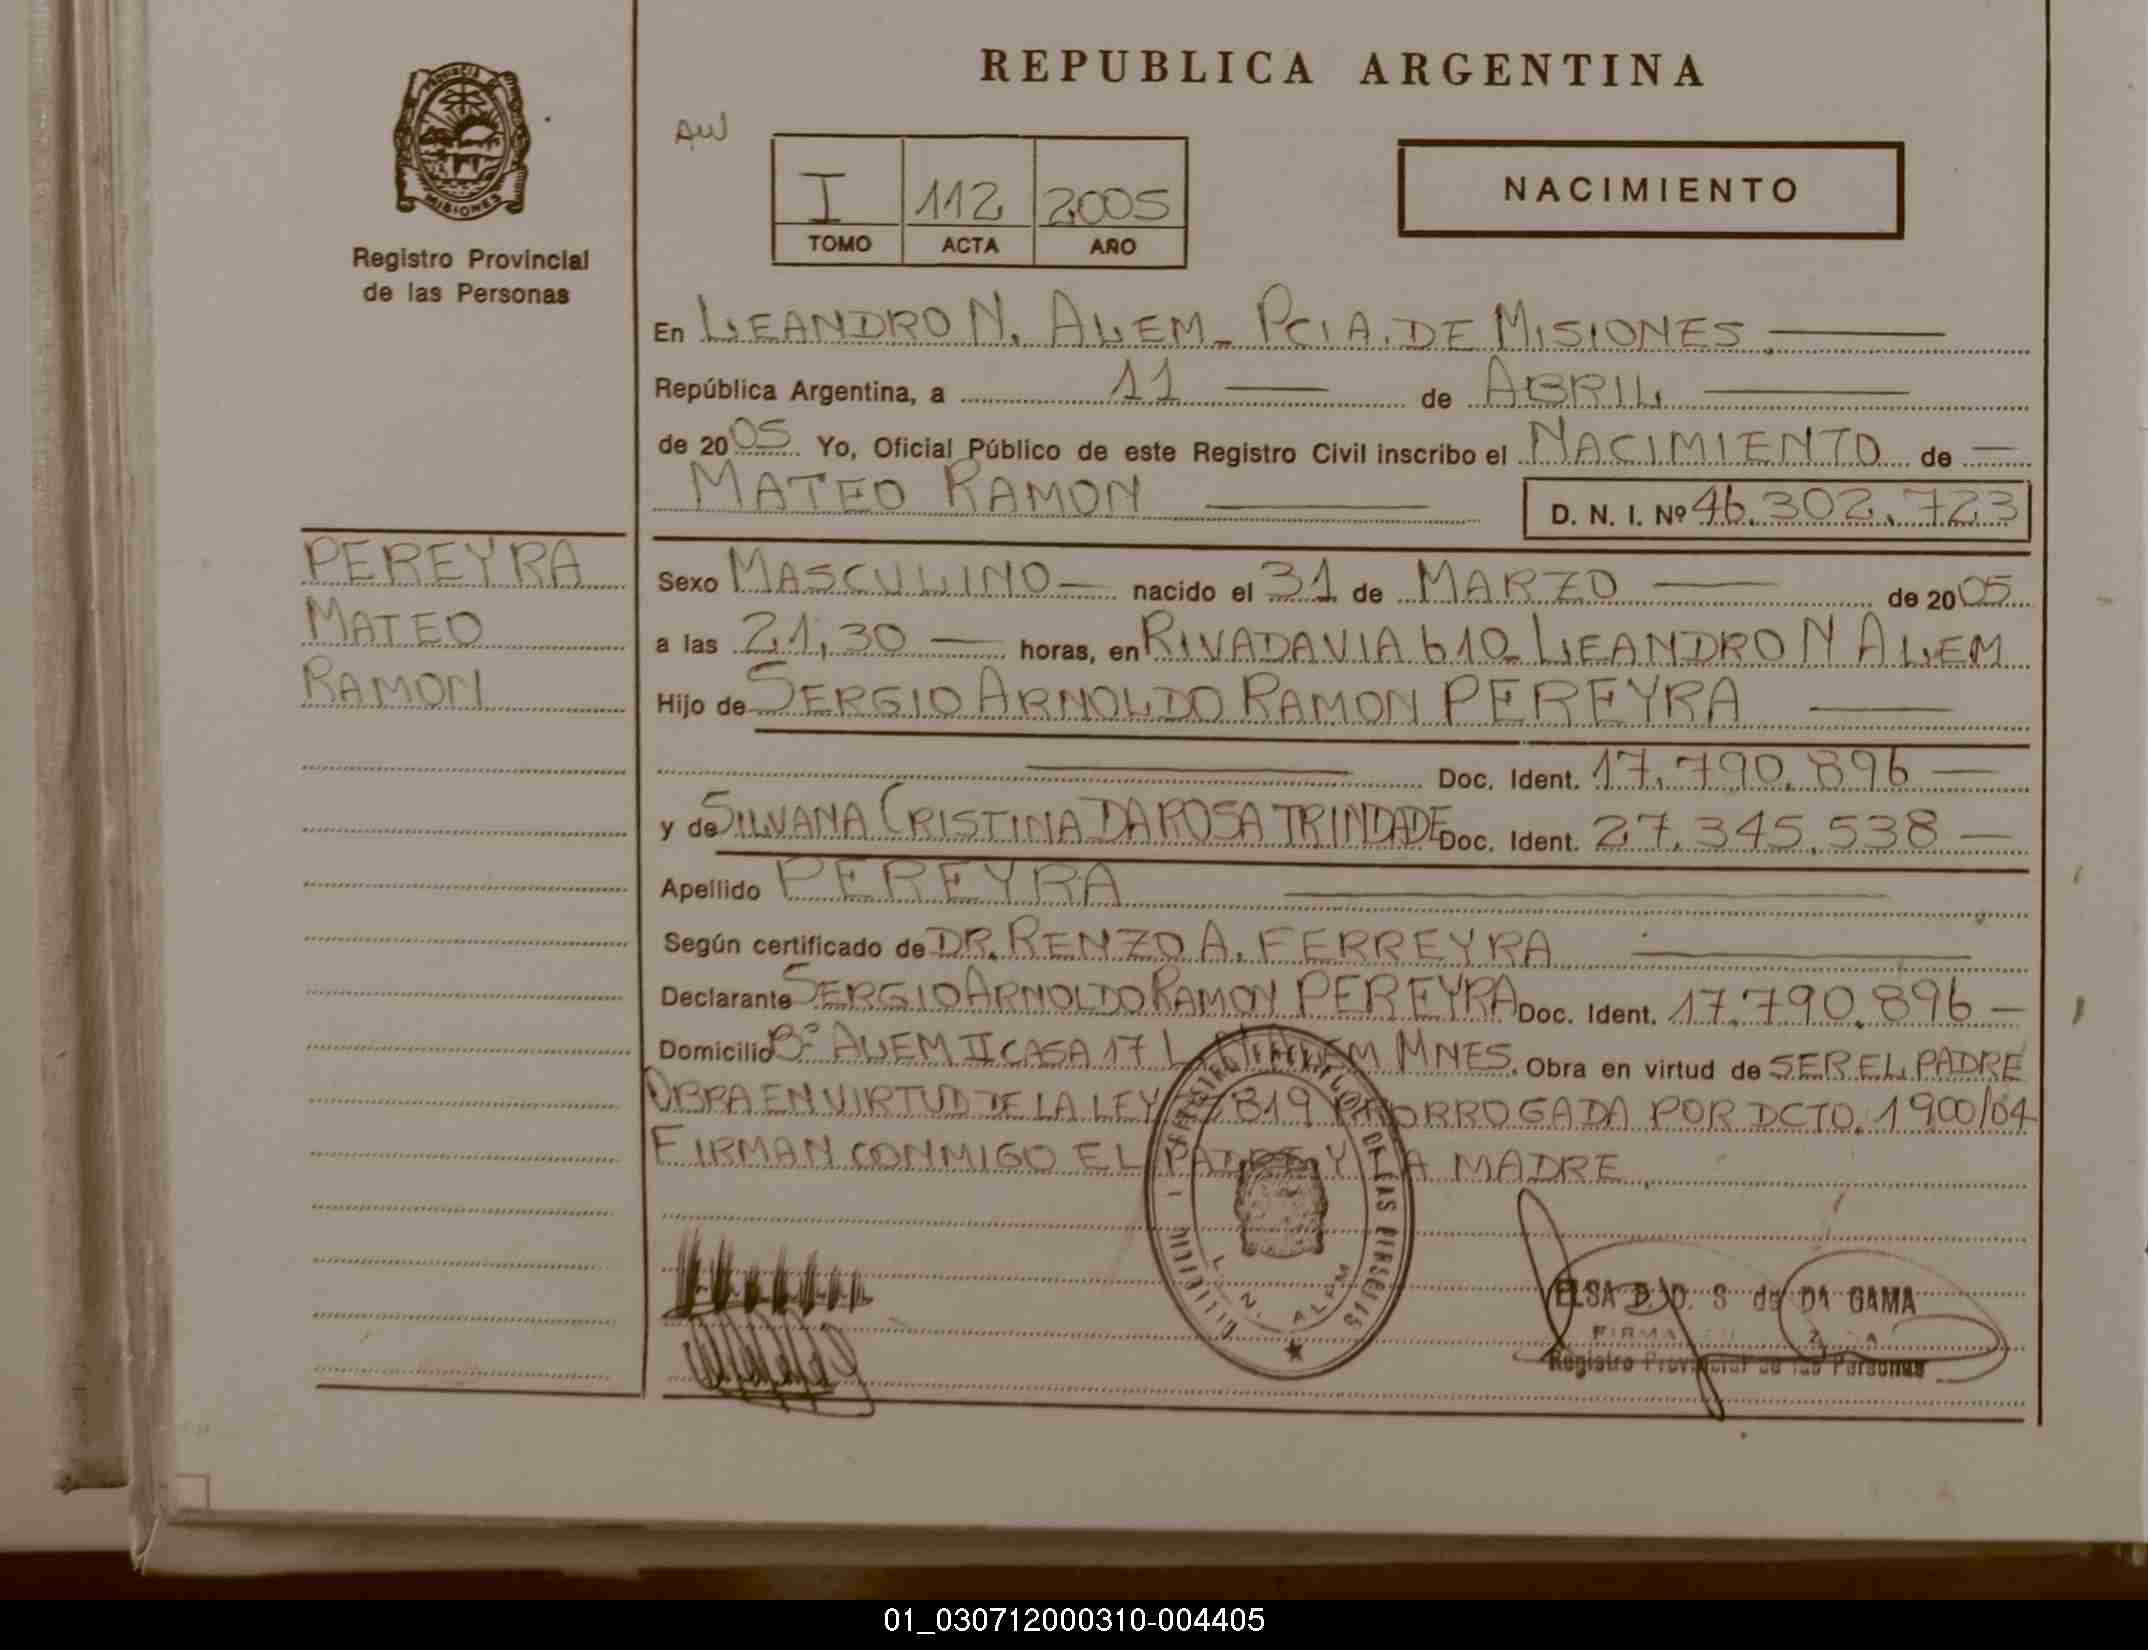 REPUBLICA ARGENTINA
PROVINCIA DE
MISIONES
Registro Provincial
de las Personas
AW
I 112 2005
TOMO ACTA AÑO
NACIMIENTO
En LEANDRO N. ALEM - PCIA. DE MISIONES.
República Argentina, a 11 de ABRIL
de 2005 Yo, Oficial Público de este Registro Civil inscribo el NACIMIENTO de
MATEO RAMON D. N. I. Nº 46.302.723
PEREYRA
MATEO
RAMON
Sexo MASCULINO nacido el 31 de MARZO de 2005
a las 21,30 horas, en RIVADAVIA 610 - LEANDRO N ALEM
Hijo de SERGIO ARNOLDO RAMON PEREYRA
Doc. Ident. 17.790.896
y de SILVANA CRISTINA DA ROSA TRINDADE Doc. Ident. 27.345.538
Apellido PEREYRA
Según certificado de DR. RENZO A. FERREYRA
Declarante SERGIO ARNOLDO RAMON PEREYRA Doc. Ident. 17.790.896
Domicilio Bº ALEM II CASA 17 L. N. ALEM MNES. Obra en virtud de SER EL PADRE
OBRA EN VIRTUD DE LA LEY 819 PRORROGADA POR DCTO. 1900/04
FIRMAN CONMIGO EL PADRE Y LA MADRE.
DE LAS PERSONAS
L. N. ALEM
ELSA D. S de DA GAMA
FIRMA
Registro Provincial de las Personas
01_030712000310-004405